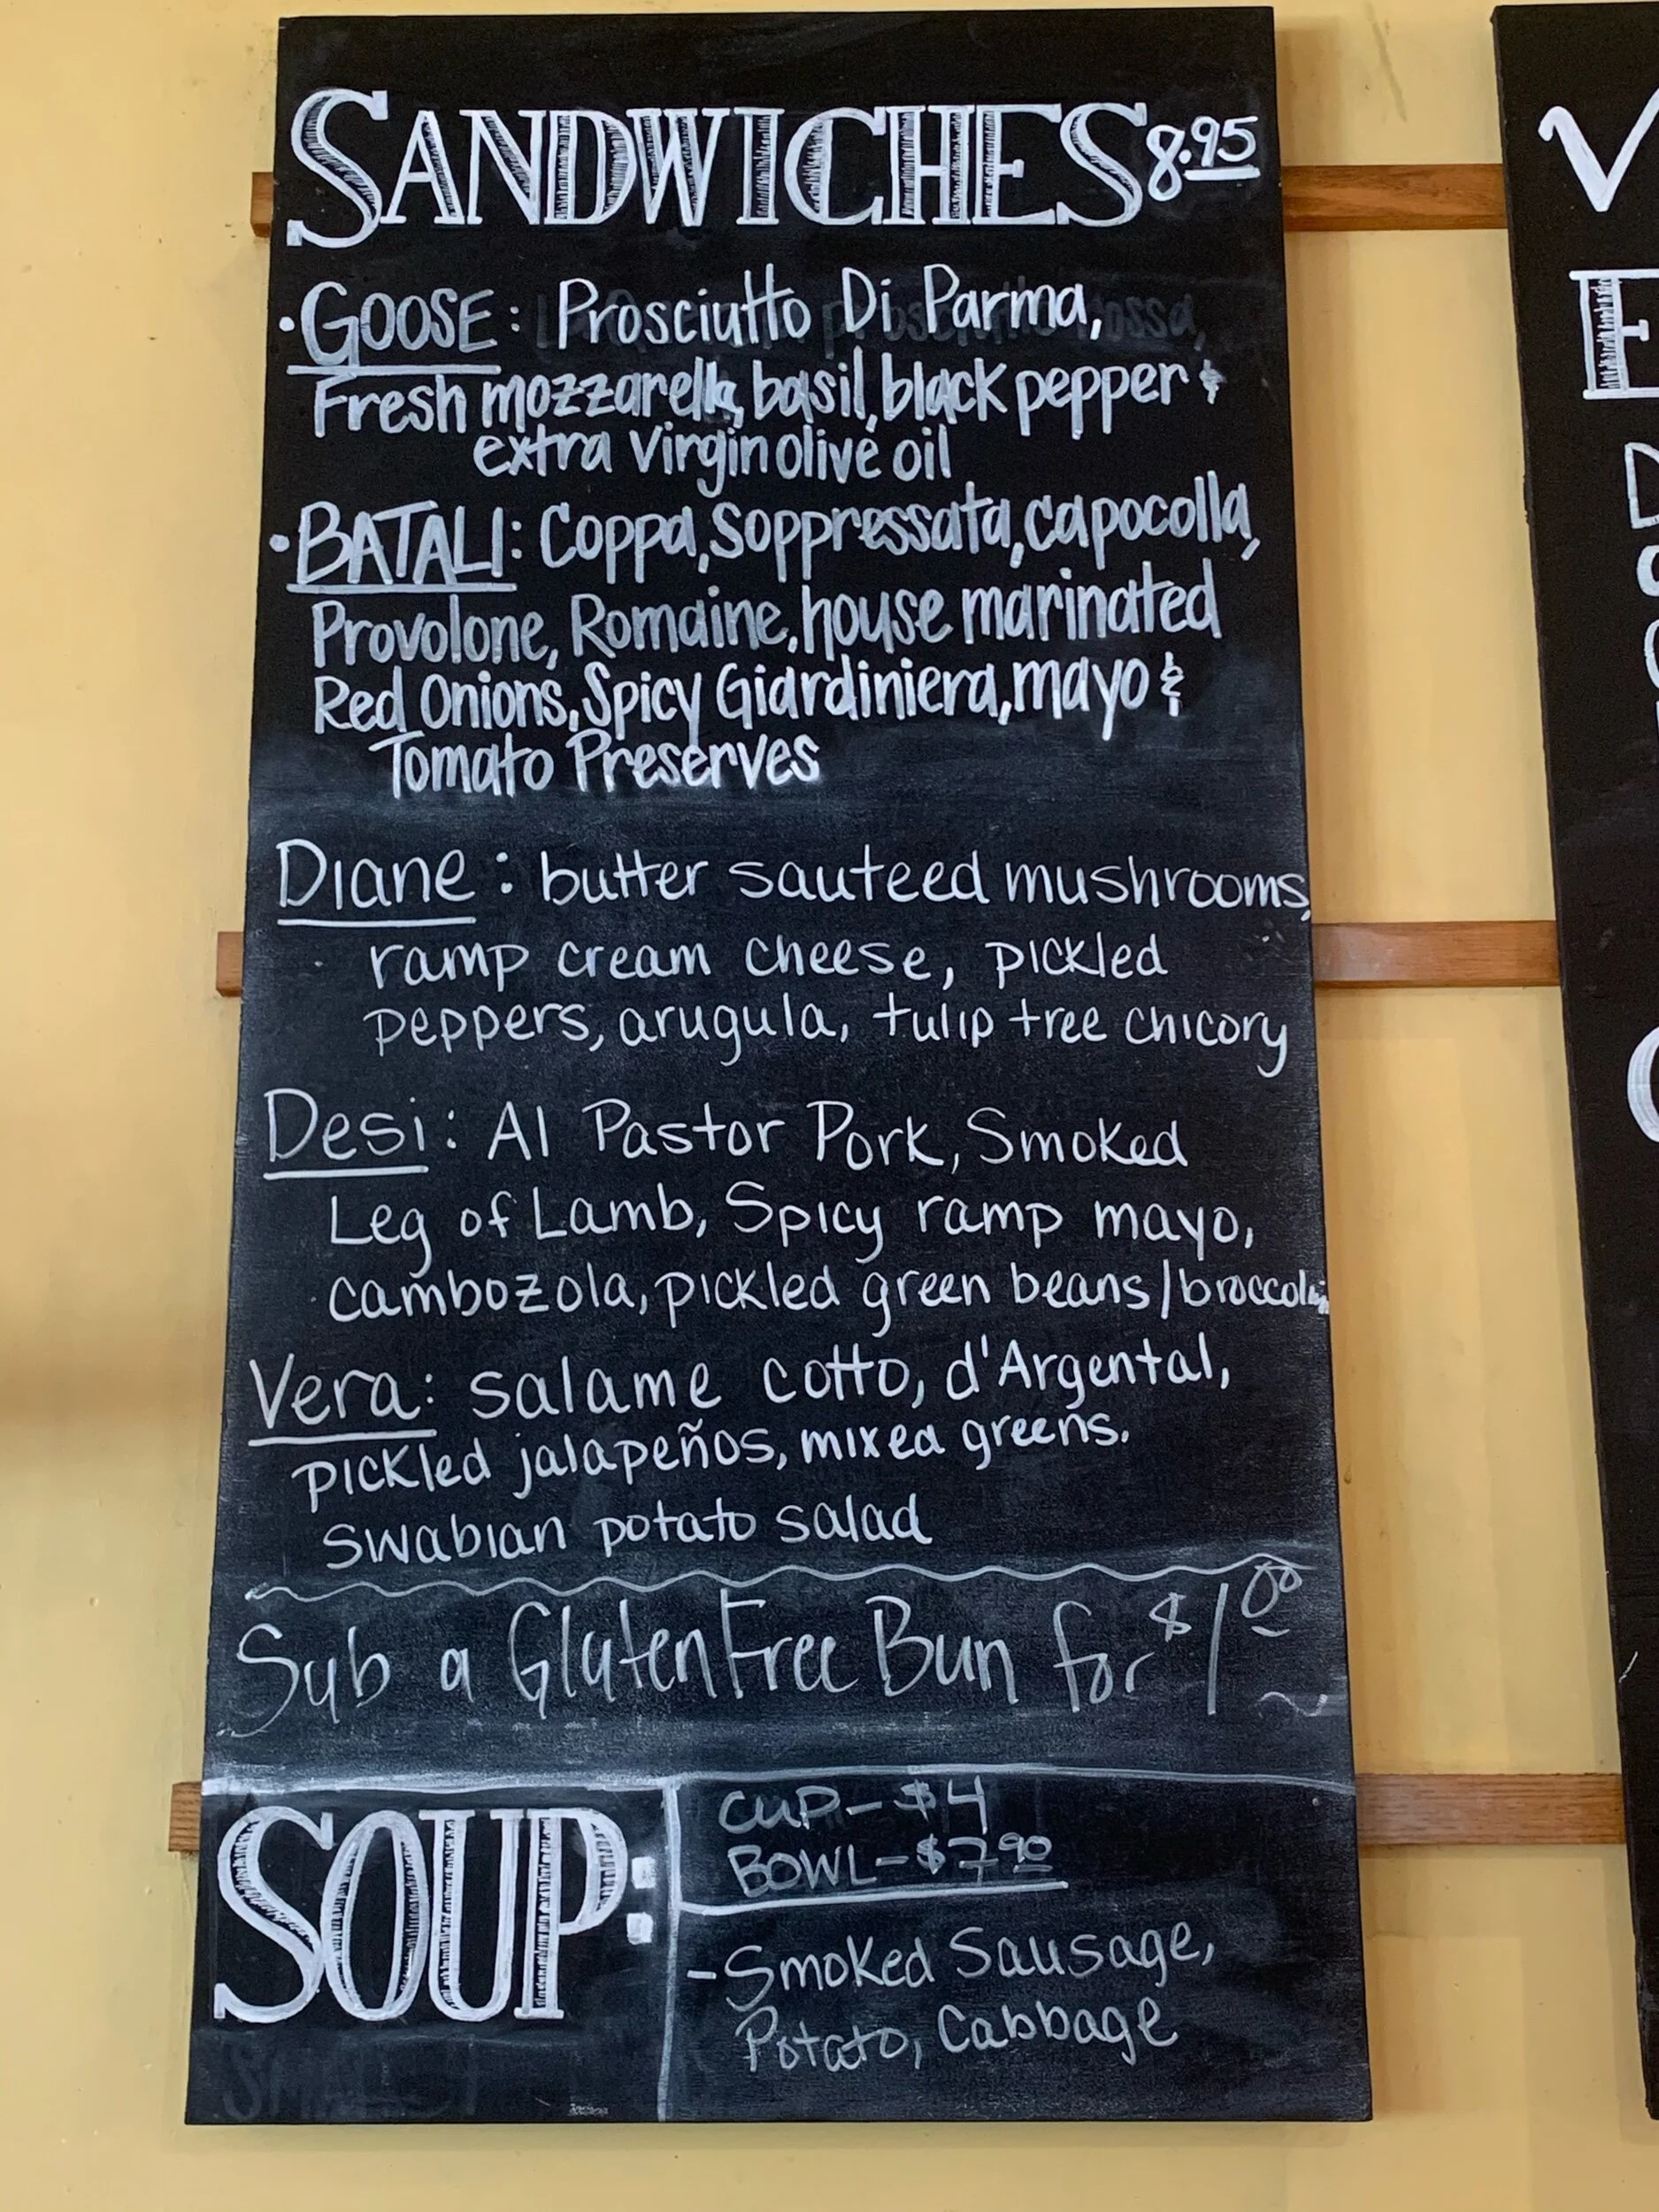 SANDWICHES 8.95
• GOOSE: Prosciutto Di Parma,
Fresh mozzarella, basil, black pepper &
extra virgin olive oil
• BATALI: Coppa, Soppressata, capocolla,
Provolone, Romaine, house marinated
Red Onions, Spicy Giardiniera, mayo &
Tomato Preserves
Diane: butter sauteed mushrooms,
ramp cream cheese, pickled
peppers, arugula, tulip tree chicory
Desi: Al Pastor Pork, Smoked
Leg of Lamb, Spicy ramp mayo,
cambozola, pickled green beans/broccolini
Vera: salame cotto, d'Argental,
pickled jalapeños, mixed greens.
swabian potato salad
Sub a Gluten Free Bun for $1.00
SOUP:
CUP - $4
BOWL - $7.90
- Smoked Sausage,
Potato, Cabbage